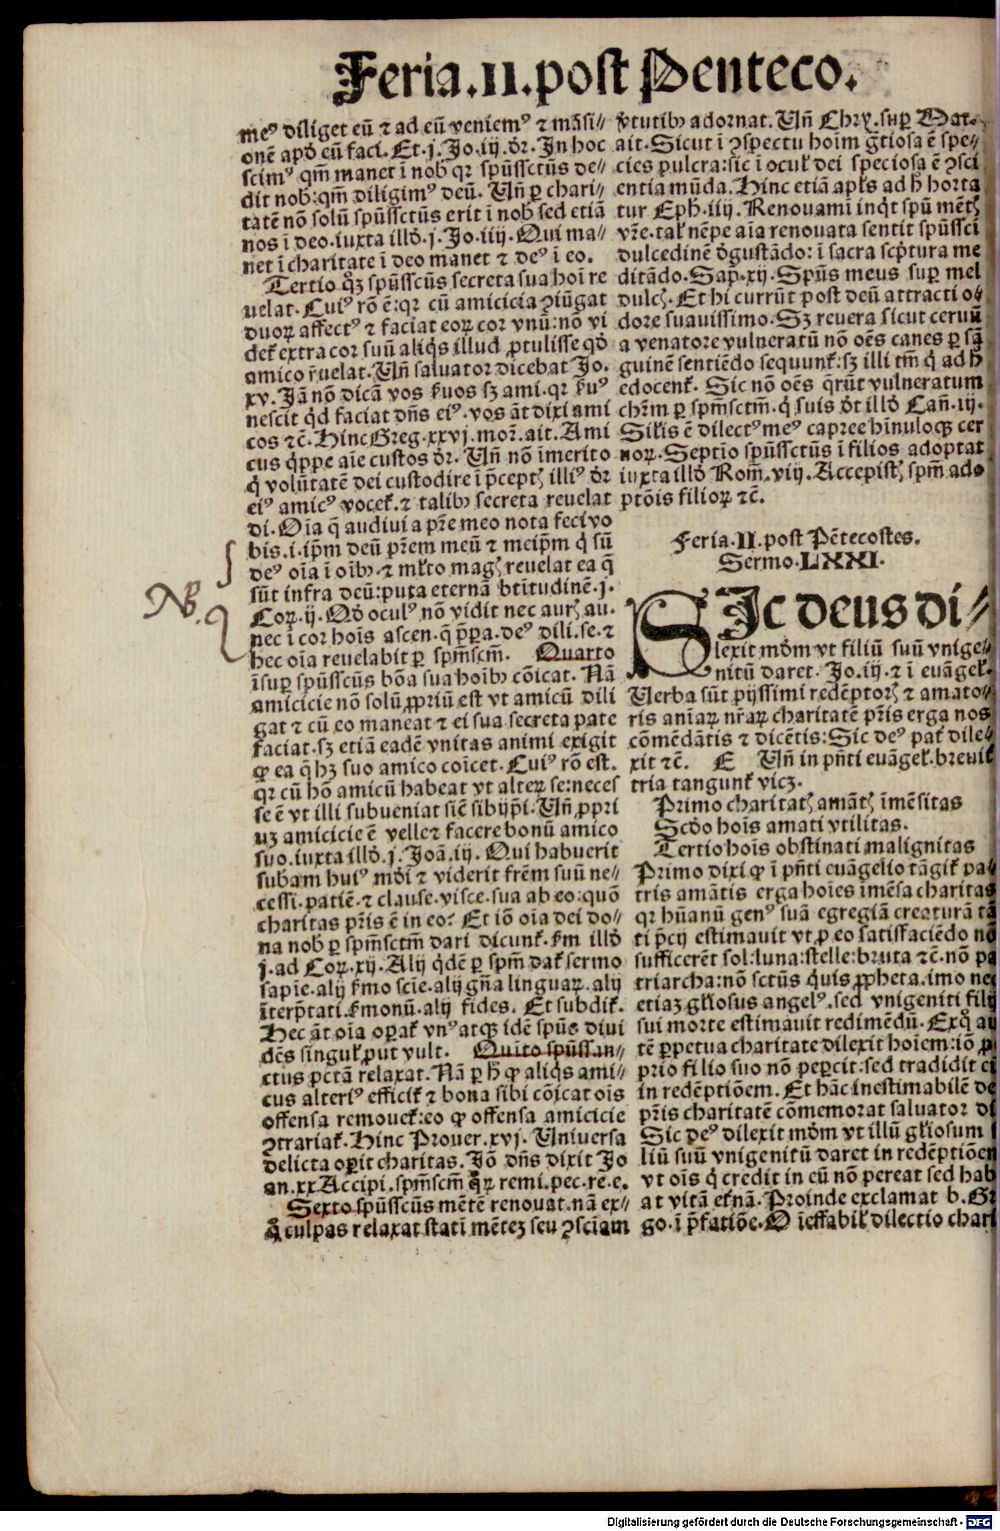 Feria.II.post Penteco.
meꝰ diliget eū ⁊ ad eū veniemꝰ ⁊ māsi//
onē apd̓ eū faci. Et.j.Jo.iij.dr̄. In hoc
scimꝰ qm̄ manet ī nob̓ qꝛ spūssctūs de//
dit nob̓:qm̄ diligimꝰ deū. Vn̄ ꝑ chari//
tatē nō solū spūssctūs erit ī nob̓ sed etiā
nos ī deo.iuxta illd̓.j.Jo.iiij.Qui ma//
net ī charitate ī deo manet ⁊ deꝰ ī eo.
Tertio qꝫ spūsscūs secreta sua hoī re
uelat.Cuiꝰ rō ē:qꝛ cū amicicia ꝯiūgat
duoꝝ affectꝰ ⁊ faciat eoꝝ cor vnū:nō vi
det̓ extra cor suū aliqͥs illud ꝓtulisse qd̓
amico r̄uelat.Vn̄ saluator dicebat Jo.
xv.Jā nō dicā vos ẜuos sꝫ ami.qꝛ ẜuꝰ
nescit qͥd faciat dn̄s eiꝰ.vos āt dixi ami
cos ⁊c̄.Hinc Greg.xxvj.mor̄.ait.Ami
cus qͥppe aīe custos dr̄. Vn̄ nō īmerito
qͥ volūtatē dei custodire ī p̄ceptꝭ illiꝰ dr̄
eiꝰ amicꝰ vocet̓.⁊ talibꝰ secreta reuelat
di.Oīa q̄ audiui a pr̄e meo nota feci vo
bis.i.ip̄m deū pr̄em meū ⁊ meip̄m qͥ sū
deꝰ oīa ī oībꝰ.⁊ ml̓to magꝭ reuelat ea q̄
sūt infra deū:puta eternā btītudinē.j.
Coꝝ.ij.Qd̓ oculꝰ nō vidit nec aurꝭ au.
nec ī cor hoīs ascen.q̄ p̄pa.deꝰ dili.se.⁊
hec oīa reuelabit ꝑ spm̄scm̄. Quarto
īsuꝑ spūsscūs bōa sua hoībꝰ cōicat.Nā
amicicie nō solū ꝓpriū est vt amicū dili
gat ⁊ cū eo maneat ⁊ ei sua secreta pate
faciat.sꝫ etiā eadē vnitas animi exigit
ꝙ ea q̄ hꝫ suo amico coīcet.Cuiꝰ rō est.
qꝛ cū hō amicū habeat vt alteꝝ se:neces
se ē vt illi subueniat siē sibijp̄i.Vn̄ ꝓpri
uꝫ amicicie ē velle⁊ facere bonū amico
suo.iuxta illd̓.j.Joā.iij.Qui habuerit
subam huiꝰ mdi ⁊ viderit fr̄em suū ne//
cessi.patiē.⁊ clause.visce.sua ab eo:quō
charitas pr̄is ē in eo? Et iō oīa dei do//
na nob̓ ꝑ spm̄sctm̄ dari dicunt̓.ẜm illd̓
j.ad Coꝝ.xij.Alij qͥdē ꝑ spm̄ dat̓ sermo
sapie.alij ẜmo scie.alij gn̄a linguaꝝ.alij
īterp̄tati.ẜmonū.alij fides. Et subdit̓.
Hec āt oīa oꝑat̓ vnꝰatqꝫ idē spūs diui
dēs singul̓ put vult. Quīto spūssan//
ctus pctā relaxat.Nā ꝑ h̓ ꝙ aliqͥs ami//
cus alteriꝰ efficit̓ ⁊ bona sibi cōicat oīs
offensa remouet̓:eo ꝙ offensa amicicie
ꝯtrariat̓.Hinc Prouer.xvj. Vniuersa
delicta oꝑit charitas.Jō dn̄s dixit Jo
an.xx.Accipi.spm̄scm̄ qͦꝝ remi.pec.re.e.
Sexto spūsscūs mētē renouat.nā ex//
q̄ culpas relaxat statī mētez seu ꝯsciam
v̓tutibꝰ adornat.Vn̄ Chrẏ.suꝑ Mat.
ait.Sicut ī ꝯspectu hoīm gr̄tiosa ē spe//
cies pulcra:sic ī ocul̓ dei speciosa ē ꝯsci
entia mūda.Hinc etiā apl̓s ad h̓ horta
tur Eph.iiij.Renouamī inqͥt spū mētꝭ
vr̄e.tal̓ nēpe aīa renouata sentit spūssci
dulcedinē d̓gustādo:ī sacra scp̄tura me
ditādo.Sap.xij.Spūs meus suꝑ mel
dulcꝭ.Et hi currūt post deū attracti o//
dore suauissimo.Sꝫ reuera sicut ceruū
a venatore vulneratū nō oēs canes ꝑ sā
guinē sentiēdo sequunt̓:sꝫ illi tm̄ qͥ ad h̓
edocent̓. Sic nō oēs q̄rūt vulneratum
chr̄m ꝑ spm̄sctm̄.qͥ suis d̓t illd̓ Cañ.ij.
Sil̓is ē dilectꝰmeꝰ capree hīnuloqꝫ cer
uoꝝ.Septīo spūssctūs ī filios adoptat
iuxta illd̓ Rom̄.viij.Accepistꝭ spm̄ ado
ptōis filioꝝ ⁊c̄.
Feria.II.post Pētecostes.
Sermo.LXXI.
SIc deus di//
lexit mdm̄ vt filiū suū vnige//
nitū daret.Jo.iij.⁊ ī euāgel̓.
Verba sūt pijssimi redēptorꝭ ⁊ amato//
ris aniaꝝ nr̄aꝝ charitatē pr̄is erga nos
cōmēdātis ⁊ dicētis:Sic deꝰ pat̓ dile//
xit ⁊c̄. E Vn̄ in pn̄ti euāgel̓.breuit̓
tria tangunt̓ vicꝫ.
Primo charitatꝭ amātꝭ īmēsitas
Scd̓o hoīs amati vtilitas.
Tertio hoīs obstinati malignitas
Primo dixi ꝙ ī pn̄ti euāgelio tāgit̓ pa//
tris amātis erga hoīes īmēsa charitas
qꝛ hūanū genꝰ suā egregiā creaturā tā
ti p̄cij estimauit vt ꝓ eo satisfaciēdo nō
sufficerēt sol:luna:stelle:bruta ⁊c̄.nō pa
triarcha:nō sctūs qͥuis ꝓpheta.imo nec
etiaꝫ gl̓iosus angelꝰ.sed vnigeniti filij
sui morte estimauit redimēdū.Exq̄ au
tē ꝑpetua charitate dilexit hoīem:iō ꝓ
prio filio suo nō peꝑcit:sed tradidit eū
in redēptiōem.Et hāc inestimabilē de
pr̄is charitatē cōmemorat saluator di
Sic deꝰ dilexit mdm̄ vt illū gl̓iosum
liū suū vnigenitū daret in redēptiōem
vt oīs qͥ credit in eū nō pereat sed hab
at vitā et̓nā.Proinde exclamat b.Gr
go.ī p̄fatiōe.O īeffabil̓ dilectio chari
NB.
Digitalisierung gefördert durch die Deutsche Forschungsgemeinschaft - DFG